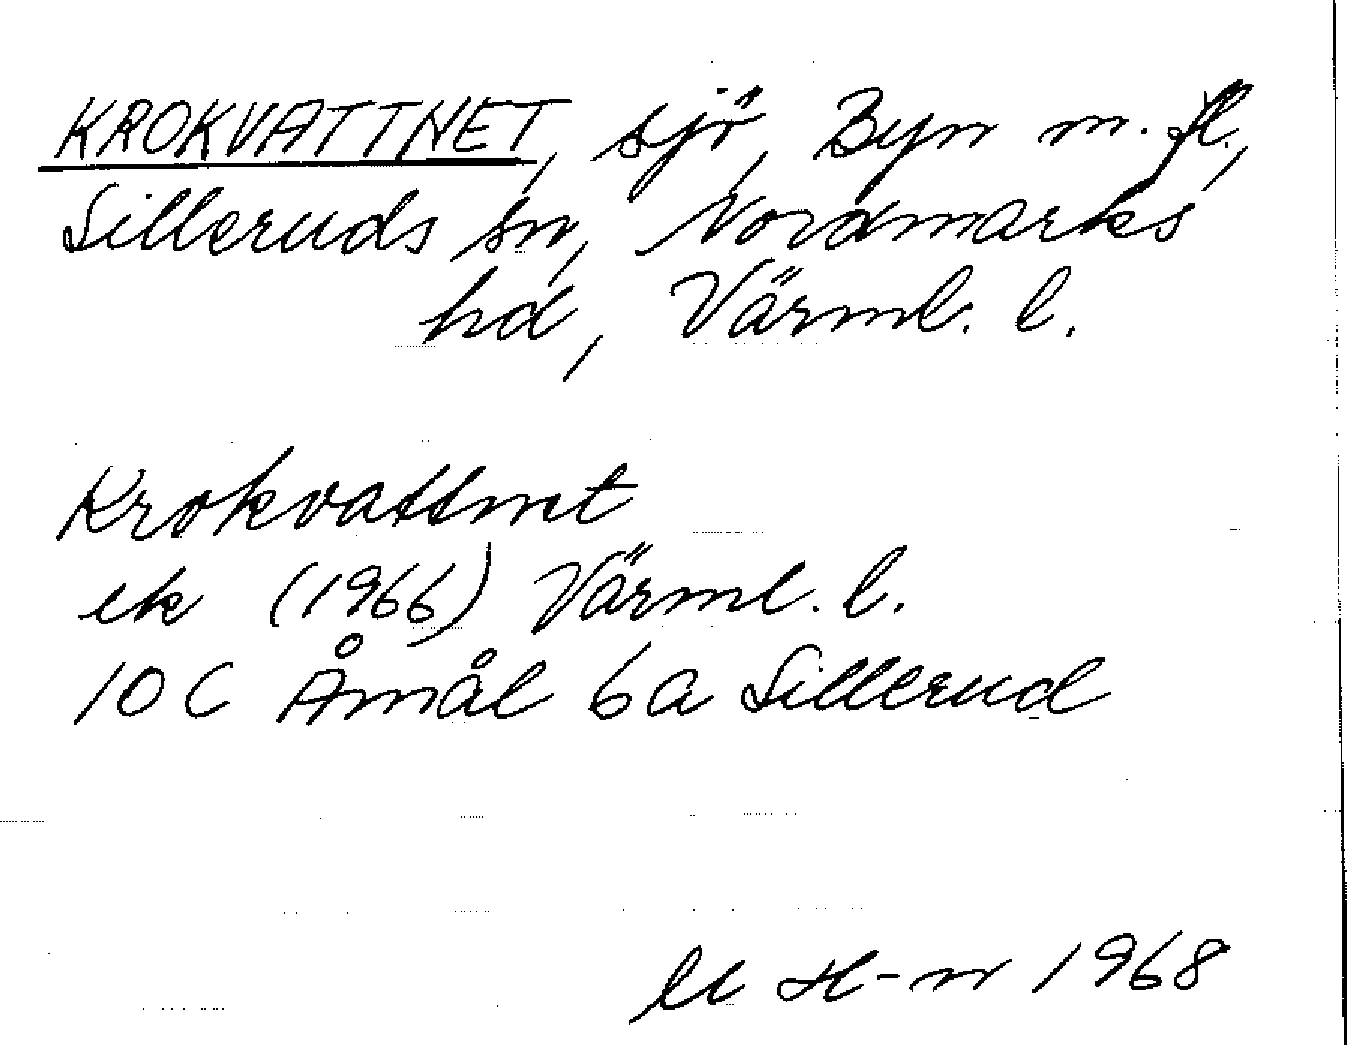 KROKVATTNET, sjö, Byn m. fl.,
Silleruds sn, Nordmarks
hd, Värml. l.
Krokvattnet
ek (1966) Värml. l.
10 C Åmål 6a Sillerud
H-n 1968